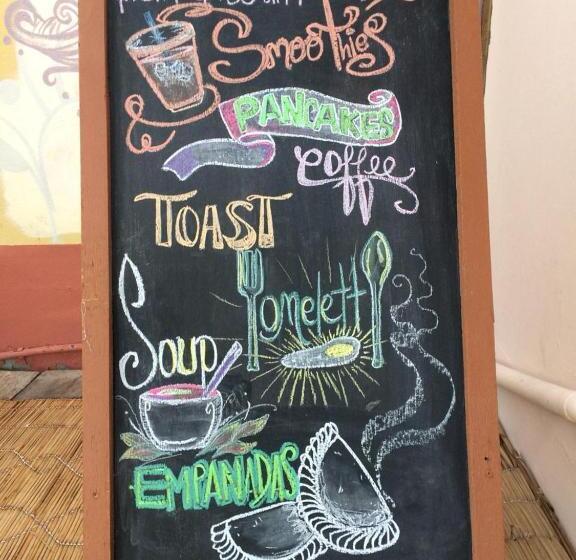 Smoothies
PANCAKES
coffee
TOAST
omelett
Soup
EMPANADAS